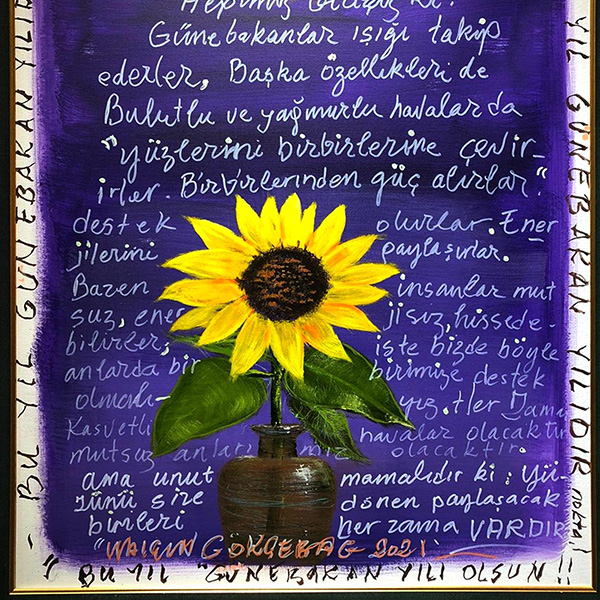 Hepimiz biliriz ki:
Günebakanlar ışığı takip
ederler, Başka özellikleri de
Bulutlu ve yağmurlu havalarda
"yüzlerini birbirlerine çevir-
irler. Birbirlerinden güç alırlar."
destek olurlar. Ener
jilerini paylaşırlar.
Bazen insanlar mut
suz, ener jisiz, hissede-
bilirler, işte bizde böyle
anlarda bir birimize destek
olmalı- yız, Her Zama
Kasvetli havalar olacaktır
mutsuz anlarımız olacaktır
ama unut mamalıdır ki: Yü-
zünü size dönen paylaşacak
birileri her zama VARDIR
"YALÇIN GÖKÇEBAĞ 2021
- BU YIL GÜNEBAKAN YILI
YIL GÜNEBAKAN YILIDIR NOKTA!
" BU YIL "GÜNEBAKAN YILI OLSUN!!